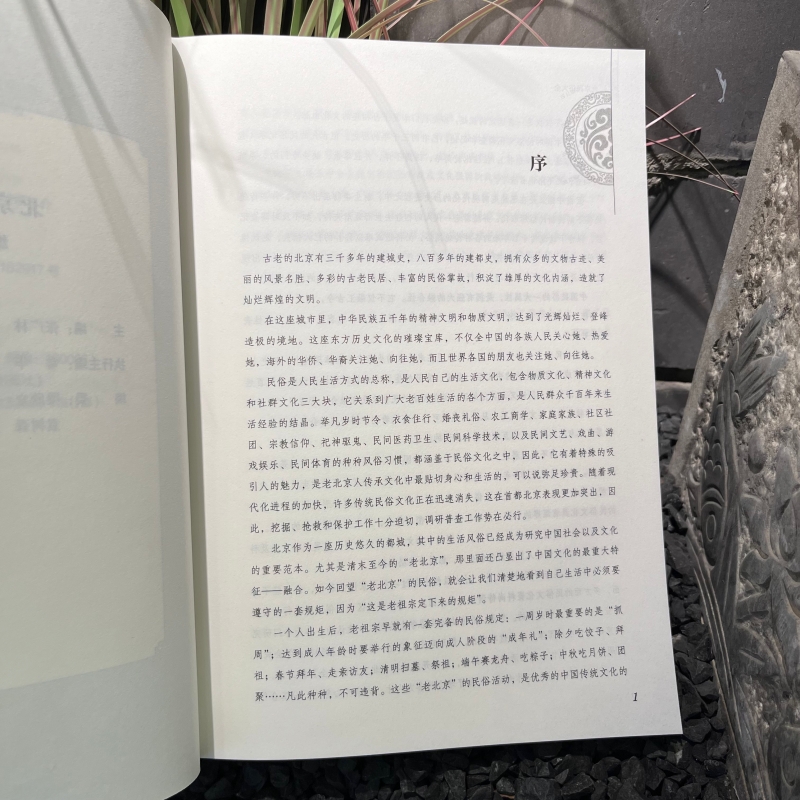 序
古老的北京有三千多年的建城史，八百多年的建都史，拥有众多的文物古迹、美
丽的风景名胜、多彩的古老民居、丰富的民俗掌故，积淀了雄厚的文化内涵，造就了
灿烂辉煌的文明。
在这座城市里，中华民族五千年的精神文明和物质文明，达到了光辉灿烂、登峰
造极的境地。这座东方历史文化的璀璨宝库，不仅全中国的各族人民关心她、热爱
她，海外的华侨、华裔关注她、向往她，而且世界各国的朋友也关注她、向往她。
民俗是人民生活方式的总称，是人民自己的生活文化，包含物质文化、精神文化
和社群文化三大块，它关系到广大老百姓生活的各个方面，是人民群众千百年来生
活经验的结晶。举凡岁时节令、衣食住行、婚丧礼俗、农工商学、家庭家族、社区社
团、宗教信仰、祀神驱鬼、民间医药卫生、民间科学技术，以及民间文艺、戏曲、游
戏娱乐、民间体育的种种风俗习惯，都涵盖于民俗文化之中，因此，它有着特殊的吸
引人的魅力，是老北京人传承文化中最贴切身心和生活的，可以说弥足珍贵。随着现
代化进程的加快，许多传统民俗文化正在迅速消失，这在首都北京表现更加突出，因
此，挖掘、抢救和保护工作十分迫切，调研普查工作势在必行。
北京作为一座历史悠久的都城，其中的生活风俗已经成为研究中国社会以及文化
的重要范本。尤其是清末至今的“老北京”，那里面还凸显出了中国文化的最重大特
征——融合。如今回望“老北京”的民俗，就会让我们清楚地看到自己生活中必须要
遵守的一套规矩，因为“这是老祖宗定下来的规矩”。
一个人出生后，老祖宗早就有一套完备的民俗规定：一周岁时最重要的是“抓
周”；达到成人年龄时要举行的象征迈向成人阶段的“成年礼”；除夕吃饺子、拜
祖；春节拜年、走亲访友；清明扫墓、祭祖；端午赛龙舟、吃粽子；中秋吃月饼、团
聚……凡此种种，不可违背。这些“老北京”的民俗活动，是优秀的中国传统文化的
1